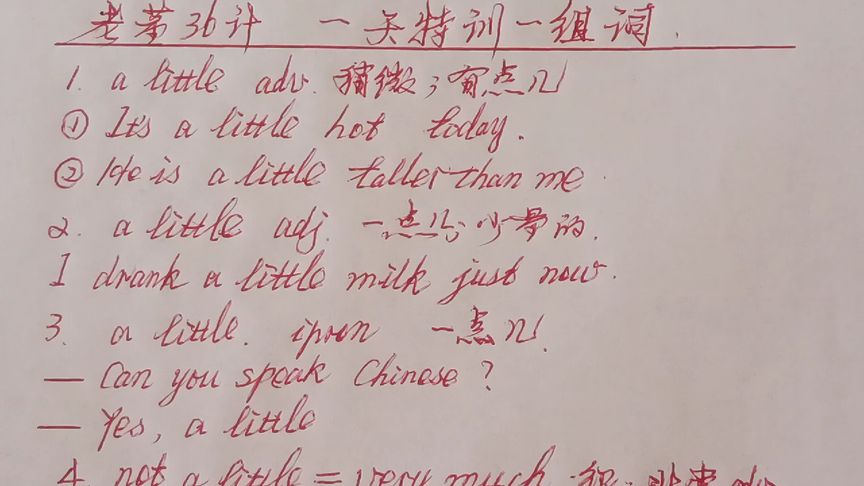 老茅36计 一天特训一组词.
1. a little adv. 稍微;有点儿
① It's a little hot today.
② He is a little taller than me.
2. a little adj. 一点儿;少量的.
I drank a little milk just now.
3. a little. ipron 一点儿.
— Can you speak Chinese?
— Yes, a little
4. not a little = very much 很;非常